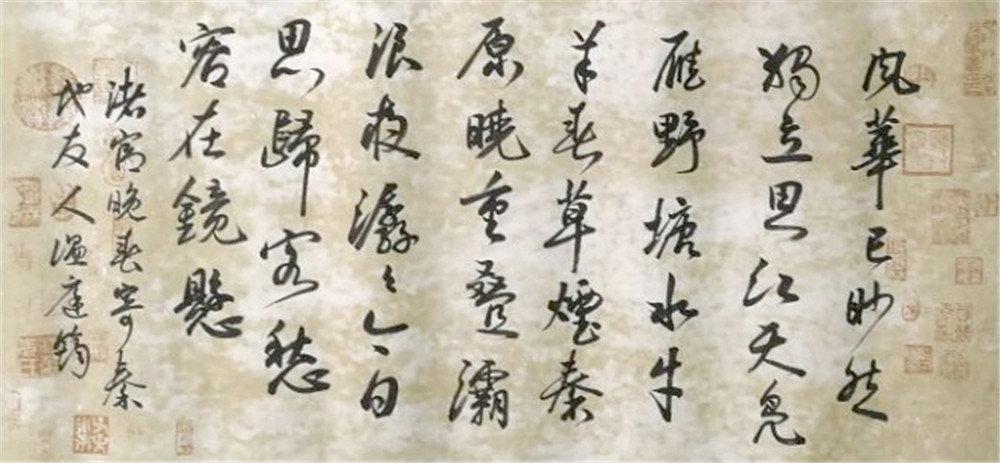 風華已眇然
獨立思江天鳧
雁野塘水牛
羊春草煙秦
原曉重疊灞
浪夜潺々今日
思歸客愁
容在鏡懸
渚宮晚春寄秦
地友人溫庭筠